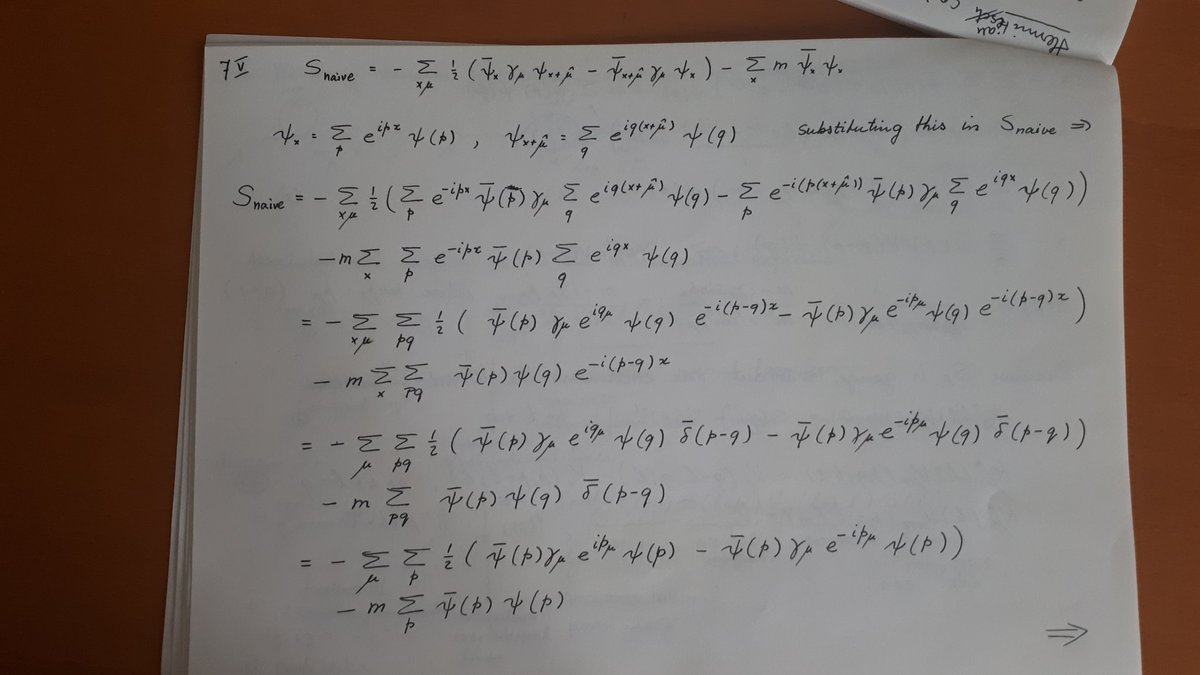 Hermitian
7 V S_naive = - Σ_{xμ} ½ ( ψ̄_x γ_μ ψ_{x+μ̂} - ψ̄_{x+μ̂} γ_μ ψ_x ) - Σ_x m ψ̄_x ψ_x
ψ_x = Σ_p e^{ipx} ψ(p) , ψ_{x+μ̂} = Σ_q e^{iq(x+μ̂)} ψ(q) substituting this in S_naive ⇒
S_naive = - Σ_{xμ} ½ ( Σ_p e^{-ipx} ψ̄(p) γ_μ Σ_q e^{iq(x+μ̂)} ψ(q) - Σ_p e^{-i(p(x+μ̂))} ψ̄(p) γ_μ Σ_q e^{iqx} ψ(q) )
- m Σ_x Σ_p e^{-ipx} ψ̄(p) Σ_q e^{iqx} ψ(q)
= - Σ_{xμ} Σ_{pq} ½ ( ψ̄(p) γ_μ e^{iq_μ} ψ(q) e^{-i(p-q)x} - ψ̄(p) γ_μ e^{-ip_μ} ψ(q) e^{-i(p-q)x} )
- m Σ_x Σ_{pq} ψ̄(p) ψ(q) e^{-i(p-q)x}
= - Σ_μ Σ_{pq} ½ ( ψ̄(p) γ_μ e^{iq_μ} ψ(q) δ̄(p-q) - ψ̄(p) γ_μ e^{-ip_μ} ψ(q) δ̄(p-q) )
- m Σ_{pq} ψ̄(p) ψ(q) δ̄(p-q)
= - Σ_μ Σ_p ½ ( ψ̄(p) γ_μ e^{ip_μ} ψ(p) - ψ̄(p) γ_μ e^{-ip_μ} ψ(p) )
- m Σ_p ψ̄(p) ψ(p)
⇒